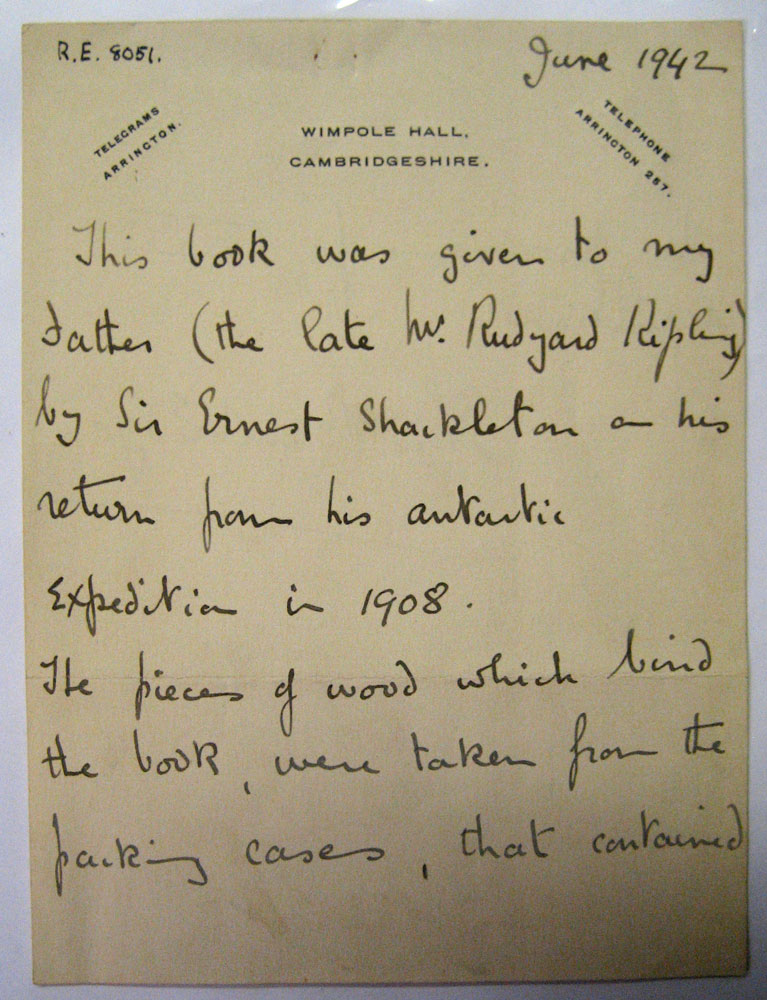 R.E. 8051.
June 1942
TELEGRAMS
ARRINGTON.
WIMPOLE HALL,
CAMBRIDGESHIRE.
TELEPHONE
ARRINGTON 257.
This book was given to my
Father (the late Mr. Rudyard Kipling)
by Sir Ernest Shackleton on his
return from his antartic
Expedition in 1908.
The pieces of wood which bind
the book, were taken from the
packing cases, that contained